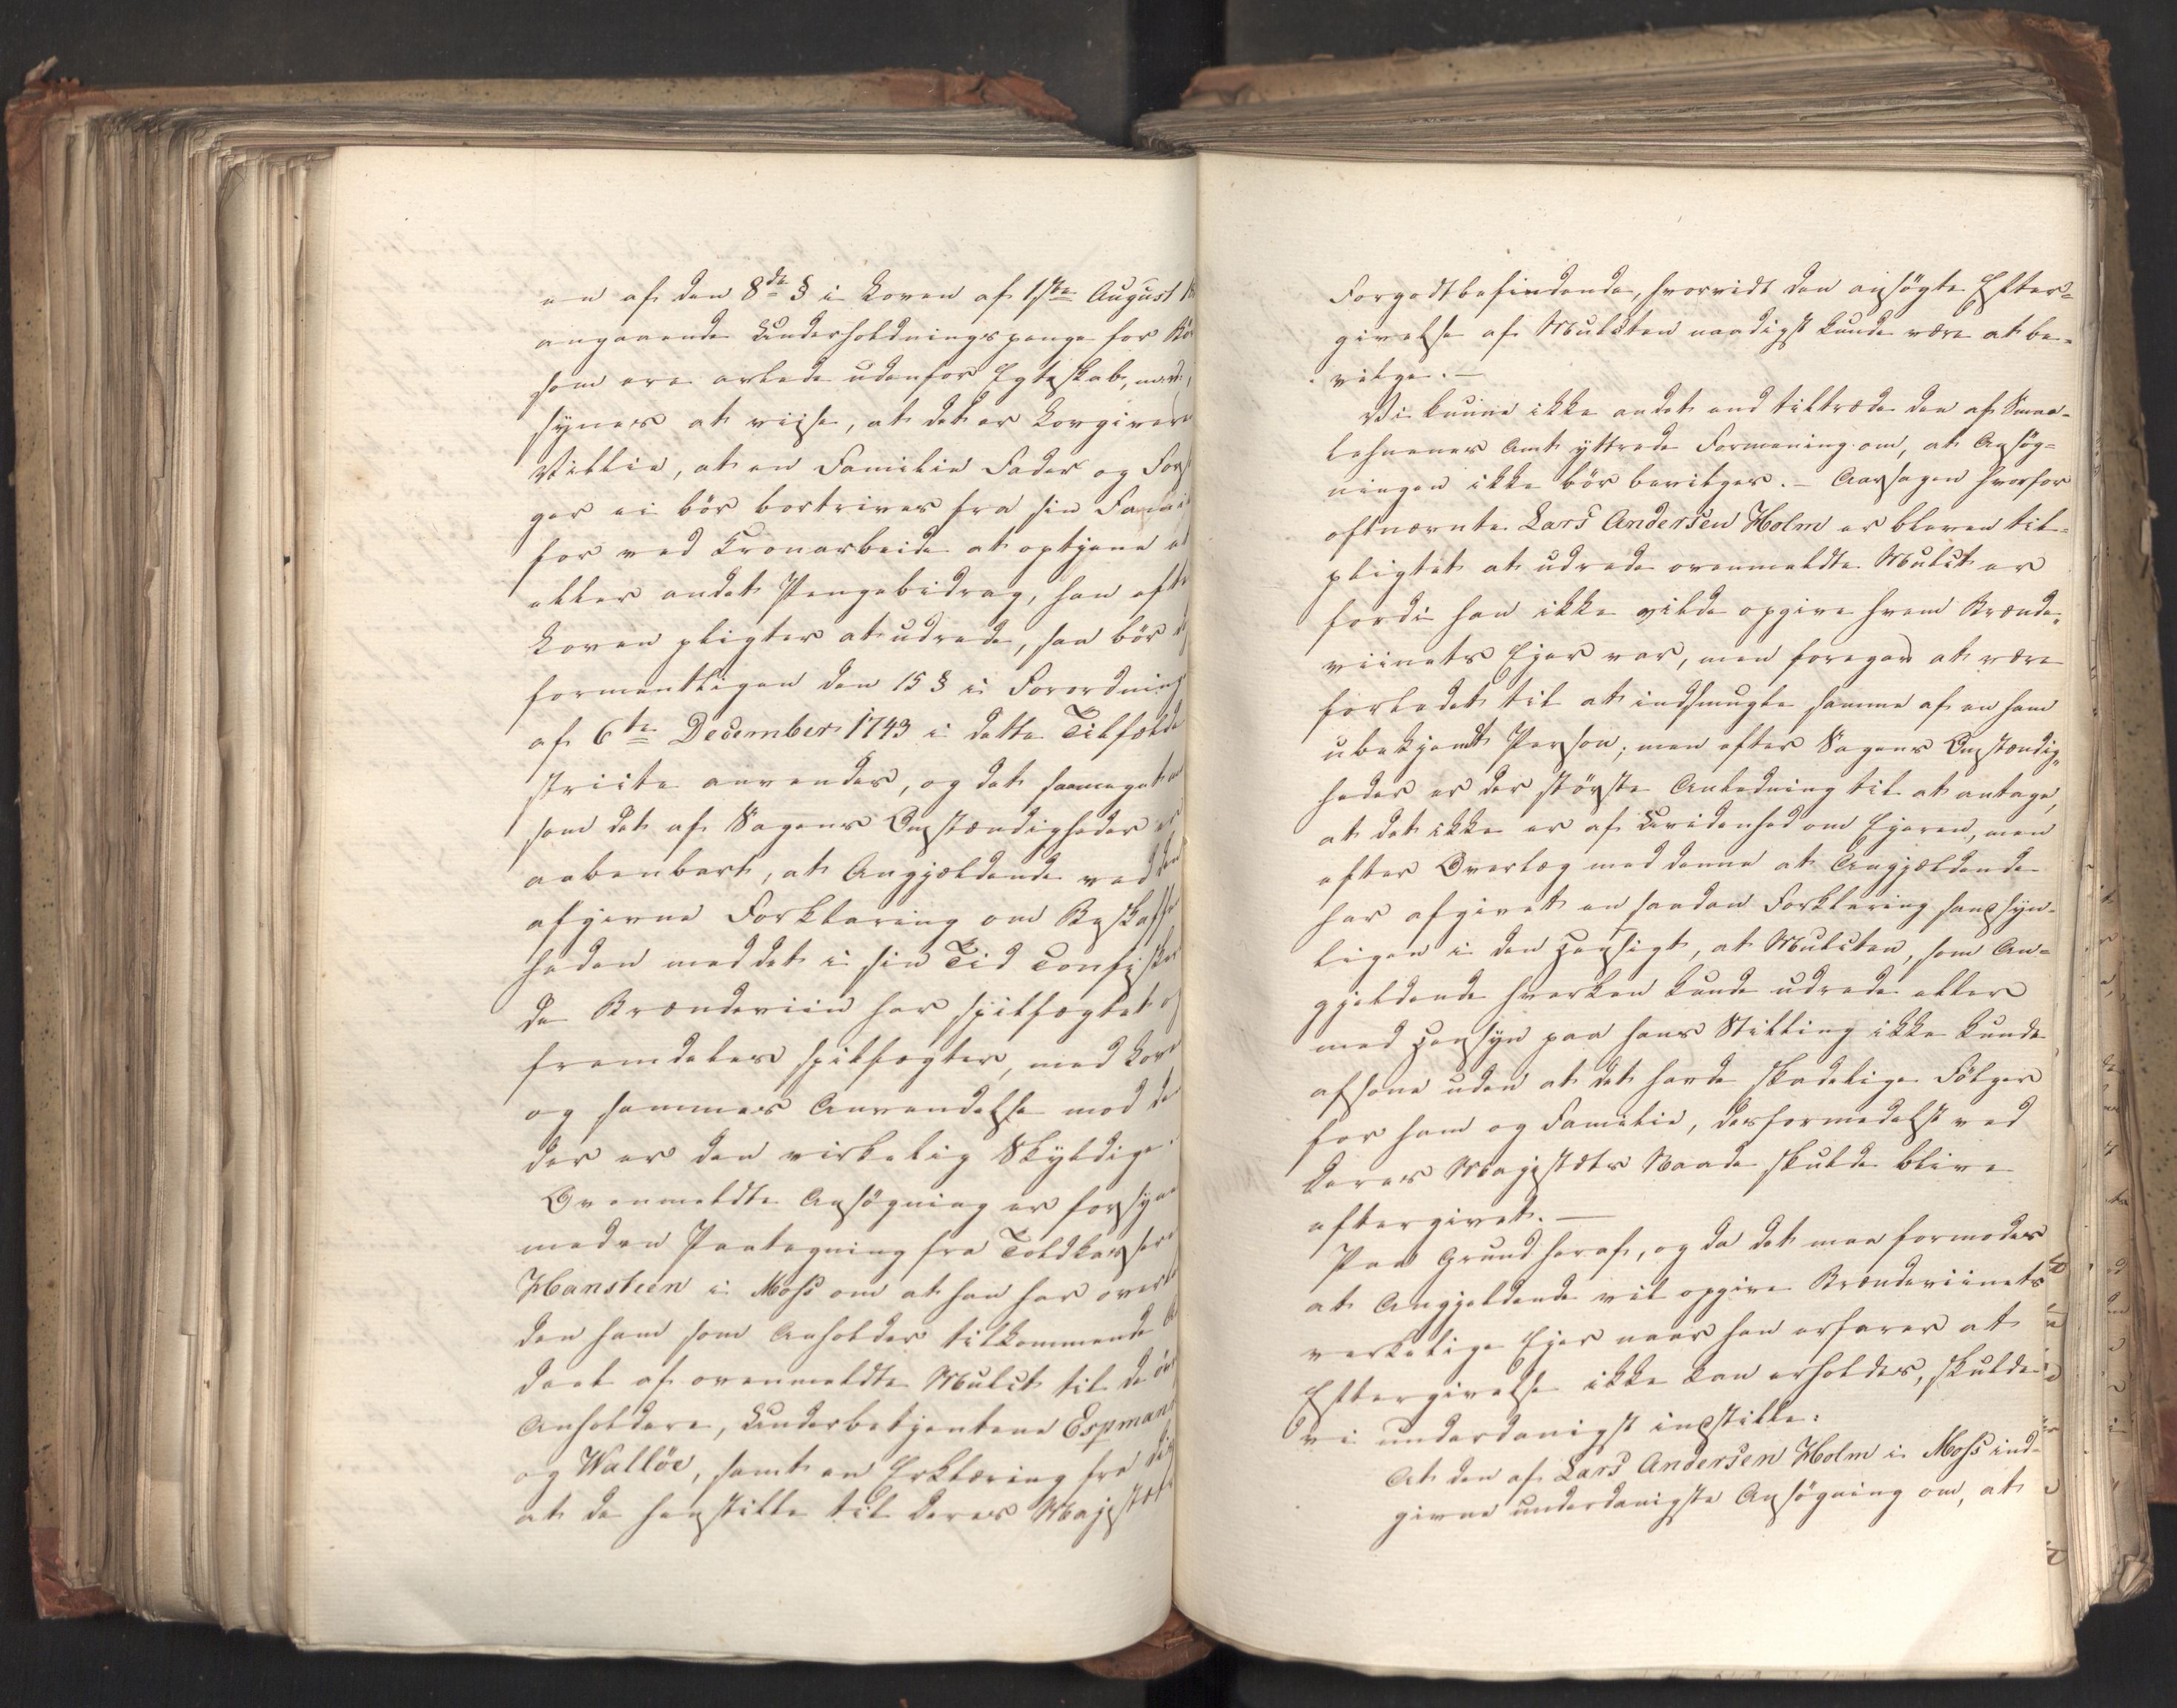 en af den 8de § i Loven af 1ste August 1
angaaende Underholdningspenge for Bör
som ere avlede udenfor Egteskab, m. v.,
synes at viise, at det er Lovgivere
Villie, at en Familie Fader og Forsö
ger ei bör bortrives fra sin Famil
for ved Tvonarbeide at optjene et
eller andet Pengebidrag, han efte
Loven pligter at udrede, saa bör
formentligen den 15 § i Forordning
af 6te December 1743 i dette Tilfælde
stricte anvendes, og det saameget me
som det af Sagens Omstændigheder er
aabenbart, at Angjældende ved den
afgivne Forklaring om Beskaffen
heden med det i sin Tid confiske
de Brændeviin har spilfægtet og
fremdeles spilfægter, med Love
og sammes Anvendelse mod de
der er den virkelig Skyldige.
Ovenmeldte Ansögning er forsyne
med en Paategning fra Toldkasserer
Hansteen i Moss om at han har overla
den ham som Anholder tilkommende A
deel af ovenmeldte Mulct til de öv
Anholdere, Underbetjentene Espman
og Wallöe, samt en Erklæring fra dis
at de henstille til Deres Majestæts
Forgodtbefindende, hvorvidt den ansögte Efter-
givelse af Mulcten naadigst kunde være at be-
vilge. —
Vi kunne ikke andet end tiltræde den af Smaa-
lehnenes Amt yttrede Formening om, at Ansög-
ningen ikke bör bevilges. — Aarsagen hvorfor
oftnævnte Lars Andersen Holm er bleven til-
pligtet at udrede ovenmeldte Mulct er
fordi han ikke vilde opgive hvem Brænde-
viinets Ejer var, men foregav at være
forledet til at indsmugle samme af en ham
ubekjendt Person; men efter Sagens Omstændig-
heder er der störste Anledning til at antage,
at det ikke er af Uvidenhed om Ejeren, men
efter Overlæg med denne at Angjældende
har afgivet en saadan Forklaring sandsyn-
ligen i den Hensigt, at Mulcten, som An-
gjeldende hverken kunde udrede eller
med Hensyn paa hans Stilling ikke kunde
afsone uden at det havde skadelige Fölger
for ham og Familie, derformedelst ved
Deres Majestæts Naade skulde blive
eftergivet. —
Paa Grund heraf, og da det maa formodes
at Angjeldende vil opgive Brændeviinets
verkelige Ejer naar han erfarer at
Eftergivelse ikke kan erholdes, skulde
vi underdanigst indstille:
At den af Lars Andersen Holm i Moss ind-
givne underdanigste Ansögning om, at